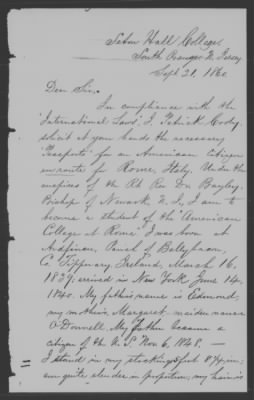 Seton Hall College,
South Orange N. Jersey
Sept 21, 1860.
Dear Sir,
In compliance with the
"International Laws" I, Patrick Cody,
solicit at your hands the necessary
"Passports" for an American citizen
en route for Rome, Italy. Under the
auspices of the Rt Rev Dr. Bayley,
Bishop of Newark N. J., I am to
become a student of the "American
College at Rome" I was born at
Ardfinan, Parish of Ballybacon,
Co Tipperary Ireland, March 16,
1839; arrived in New York June 14,
1840. My father's name is Edmond,
my mother's, Margaret maiden name
O'Donnell. My father became a
citizen of the U. S. Nov 6, 1848. —
I stand in my stockings 5 feet 8¾ in;
am quite slender in proportion; my hair is